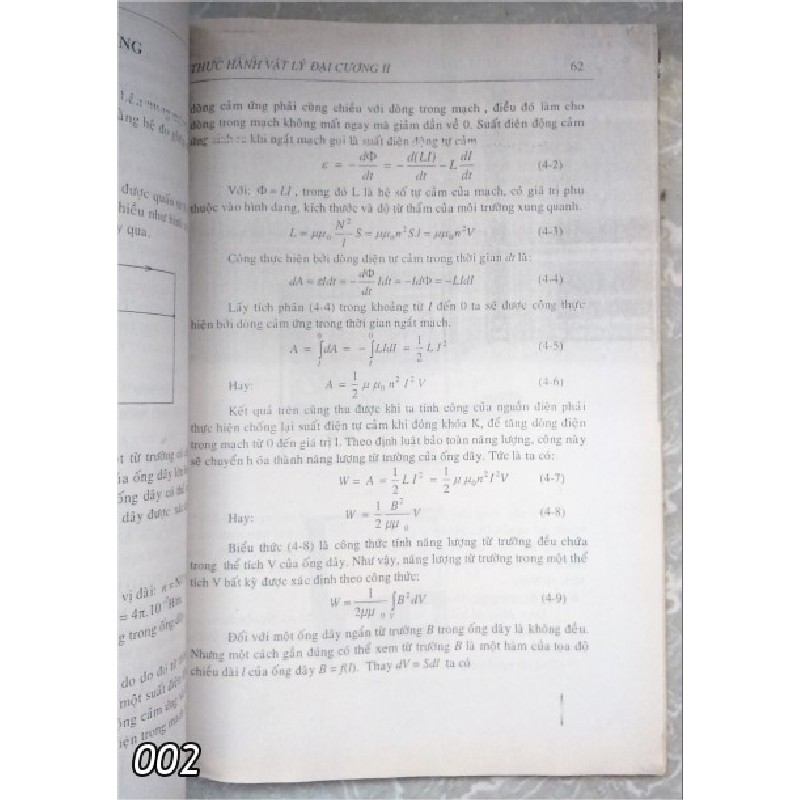 THỰC HÀNH VẬT LÝ ĐẠI CƯƠNG II 62
dòng cảm ứng phải cùng chiều với dòng trong mạch , điều đó làm cho
dòng trong mạch không mất ngay mà giảm dần về 0. Suất điện động cảm
ứng sinh ra khi ngắt mạch gọi là suất điện động tự cảm
ε = - dΦ/dt = - d(LI)/dt - L dI/dt (4-2)
Với: Φ = LI , trong đó L là hệ số tự cảm của mạch, có giá trị phụ
thuộc vào hình dạng, kích thước và độ từ thẩm của môi trường xung quanh.
L = μμ₀ N²/l S = μμ₀n²S.l = μμ₀n²V (4-3)
Công thực hiện bởi dòng điện tự cảm trong thời gian dt là:
dA = εIdt = - dΦ/dt Idt = -IdΦ = -LIdI (4-4)
Lấy tích phân (4-4) trong khoảng từ I đến 0 ta sẽ được công thực
hiện bởi dòng cảm ứng trong thời gian ngắt mạch.
A = ∫dA = - ∫LIdI = 1/2 L I² (4-5)
Hay: A = 1/2 μ μ₀ n² I² V (4-6)
Kết quả trên cũng thu được khi ta tính công của nguồn điện phải
thực hiện chống lại suất điện tự cảm khi đóng khóa K, để tăng dòng điện
trong mạch từ 0 đến giá trị I. Theo định luật bảo toàn năng lượng, công này
sẽ chuyển hóa thành năng lượng từ trường của ống dây. Tức là ta có:
W = A = 1/2 L I² = 1/2 μ μ₀n²I²V (4-7)
Hay: W = 1/2 B²/μμ₀ V (4-8)
Biểu thức (4-8) là công thức tính năng lượng từ trường đều chứa
trong thể tích V của ống dây. Như vậy, năng lượng từ trường trong một thể
tích V bất kỳ được xác định theo công thức:
W = 1/2μμ₀ ∫B²dV (4-9)
Đối với một ống dây ngắn từ trường B trong ống dây là không đều.
Nhưng một cách gần đúng có thể xem từ trường B là một hàm của tọa độ
chiều dài l của ống dây B = f(l). Thay dV = Sdl ta có
NG
được quấn
hiều như hình
y qua.
từ trường
ủa ống dây
ống dây có thể
dây được
vị dài: n = N/l
= 4π.10⁻⁷
g trong ống dây
do đó từ
một suất điện
òng cảm ứng
iện trong mạch
002